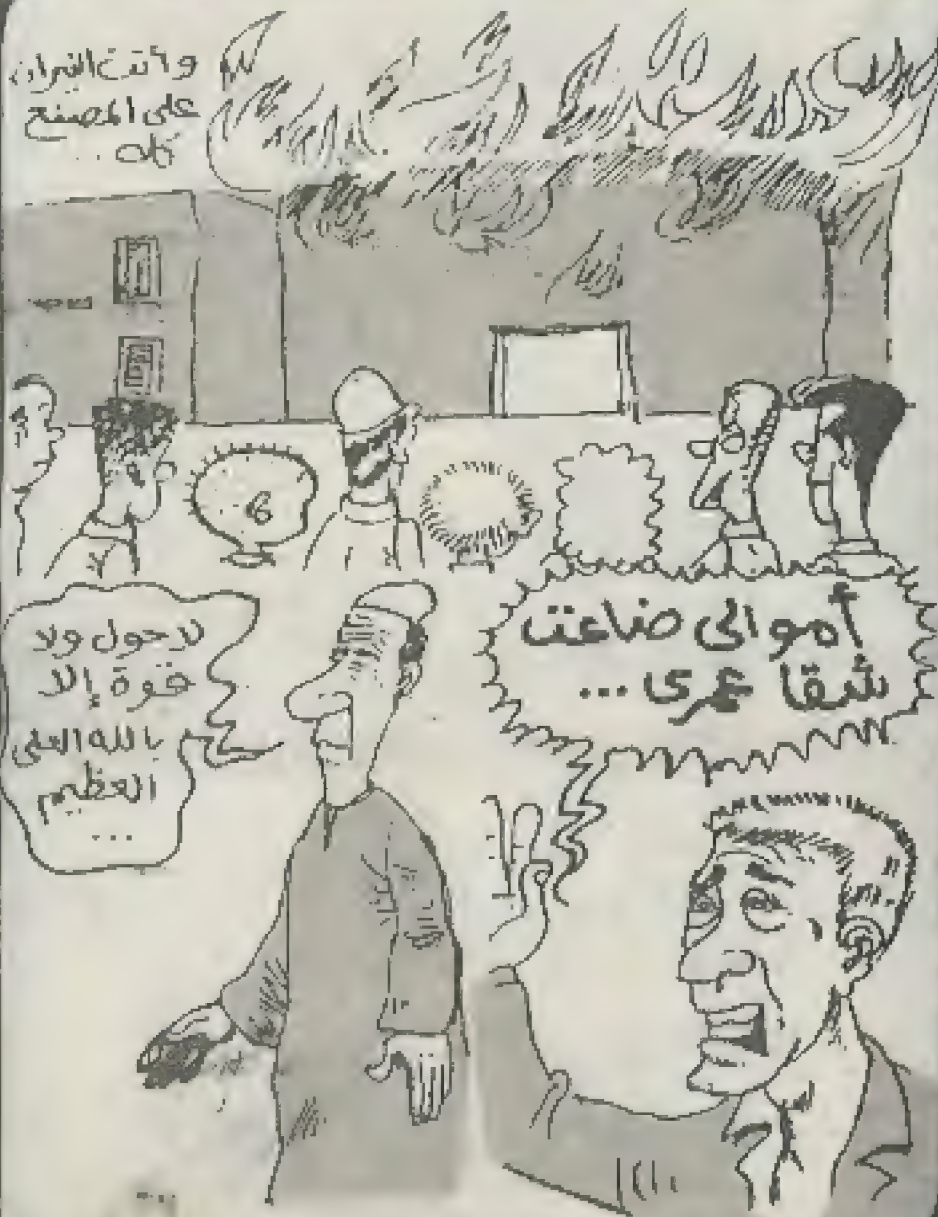 وأتت النيران
على المصنع
كله ..
أموالى ضاعت
شقا عمرى ...
لا حول ولا
قوة إلا
بالله العلى
العظيم
...